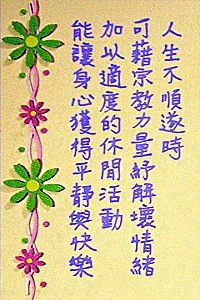 人生不順遂時
可藉宗教力量紓解壞情緒
加以適度的休閒活動
能讓身心獲得平靜與快樂